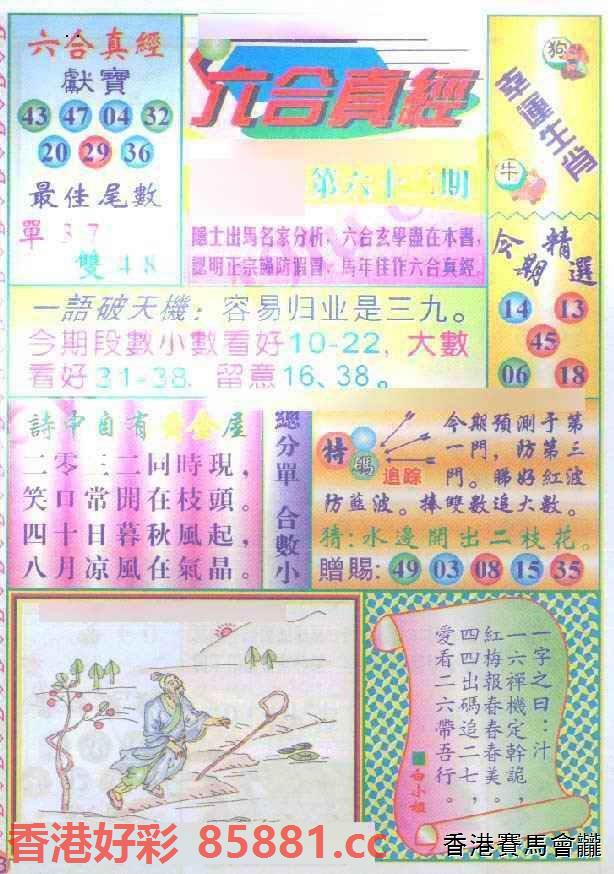 六合真經
獻寶
43 47 04 32
20 29 36
最佳尾數
單 3 7
雙 4 8
六合真經
第六十二期
隱士出馬名家分析，六合玄學盡在本書，
認明正宗歸防假冒，馬年佳作六合真經
狗
幸運生肖
牛
今期精選
14 13
45
06 18
一語破天機：容易归业是三九。
今期段數小數看好10-22，大數
看好31-38，留意16、38。
詩中自有黃金屋
二零三二同時現，
笑口常開在枝頭。
四十日暮秋風起，
八月凉風在氣晶。
總分單
合數小
特碼
追踪
今期預測于第
一門，防第三
門。睇好紅波
防藍波。捧雙數追大數。
猜：水邊開出二枝花。
贈賜：49 03 08 15 35
一字之曰：汁
一六禪機定幹詭，
紅梅報春春春美。
四四出碼追二七，
愛看二六帶吾行。
白小姐
香港好彩 85881.cc
香港賽馬會